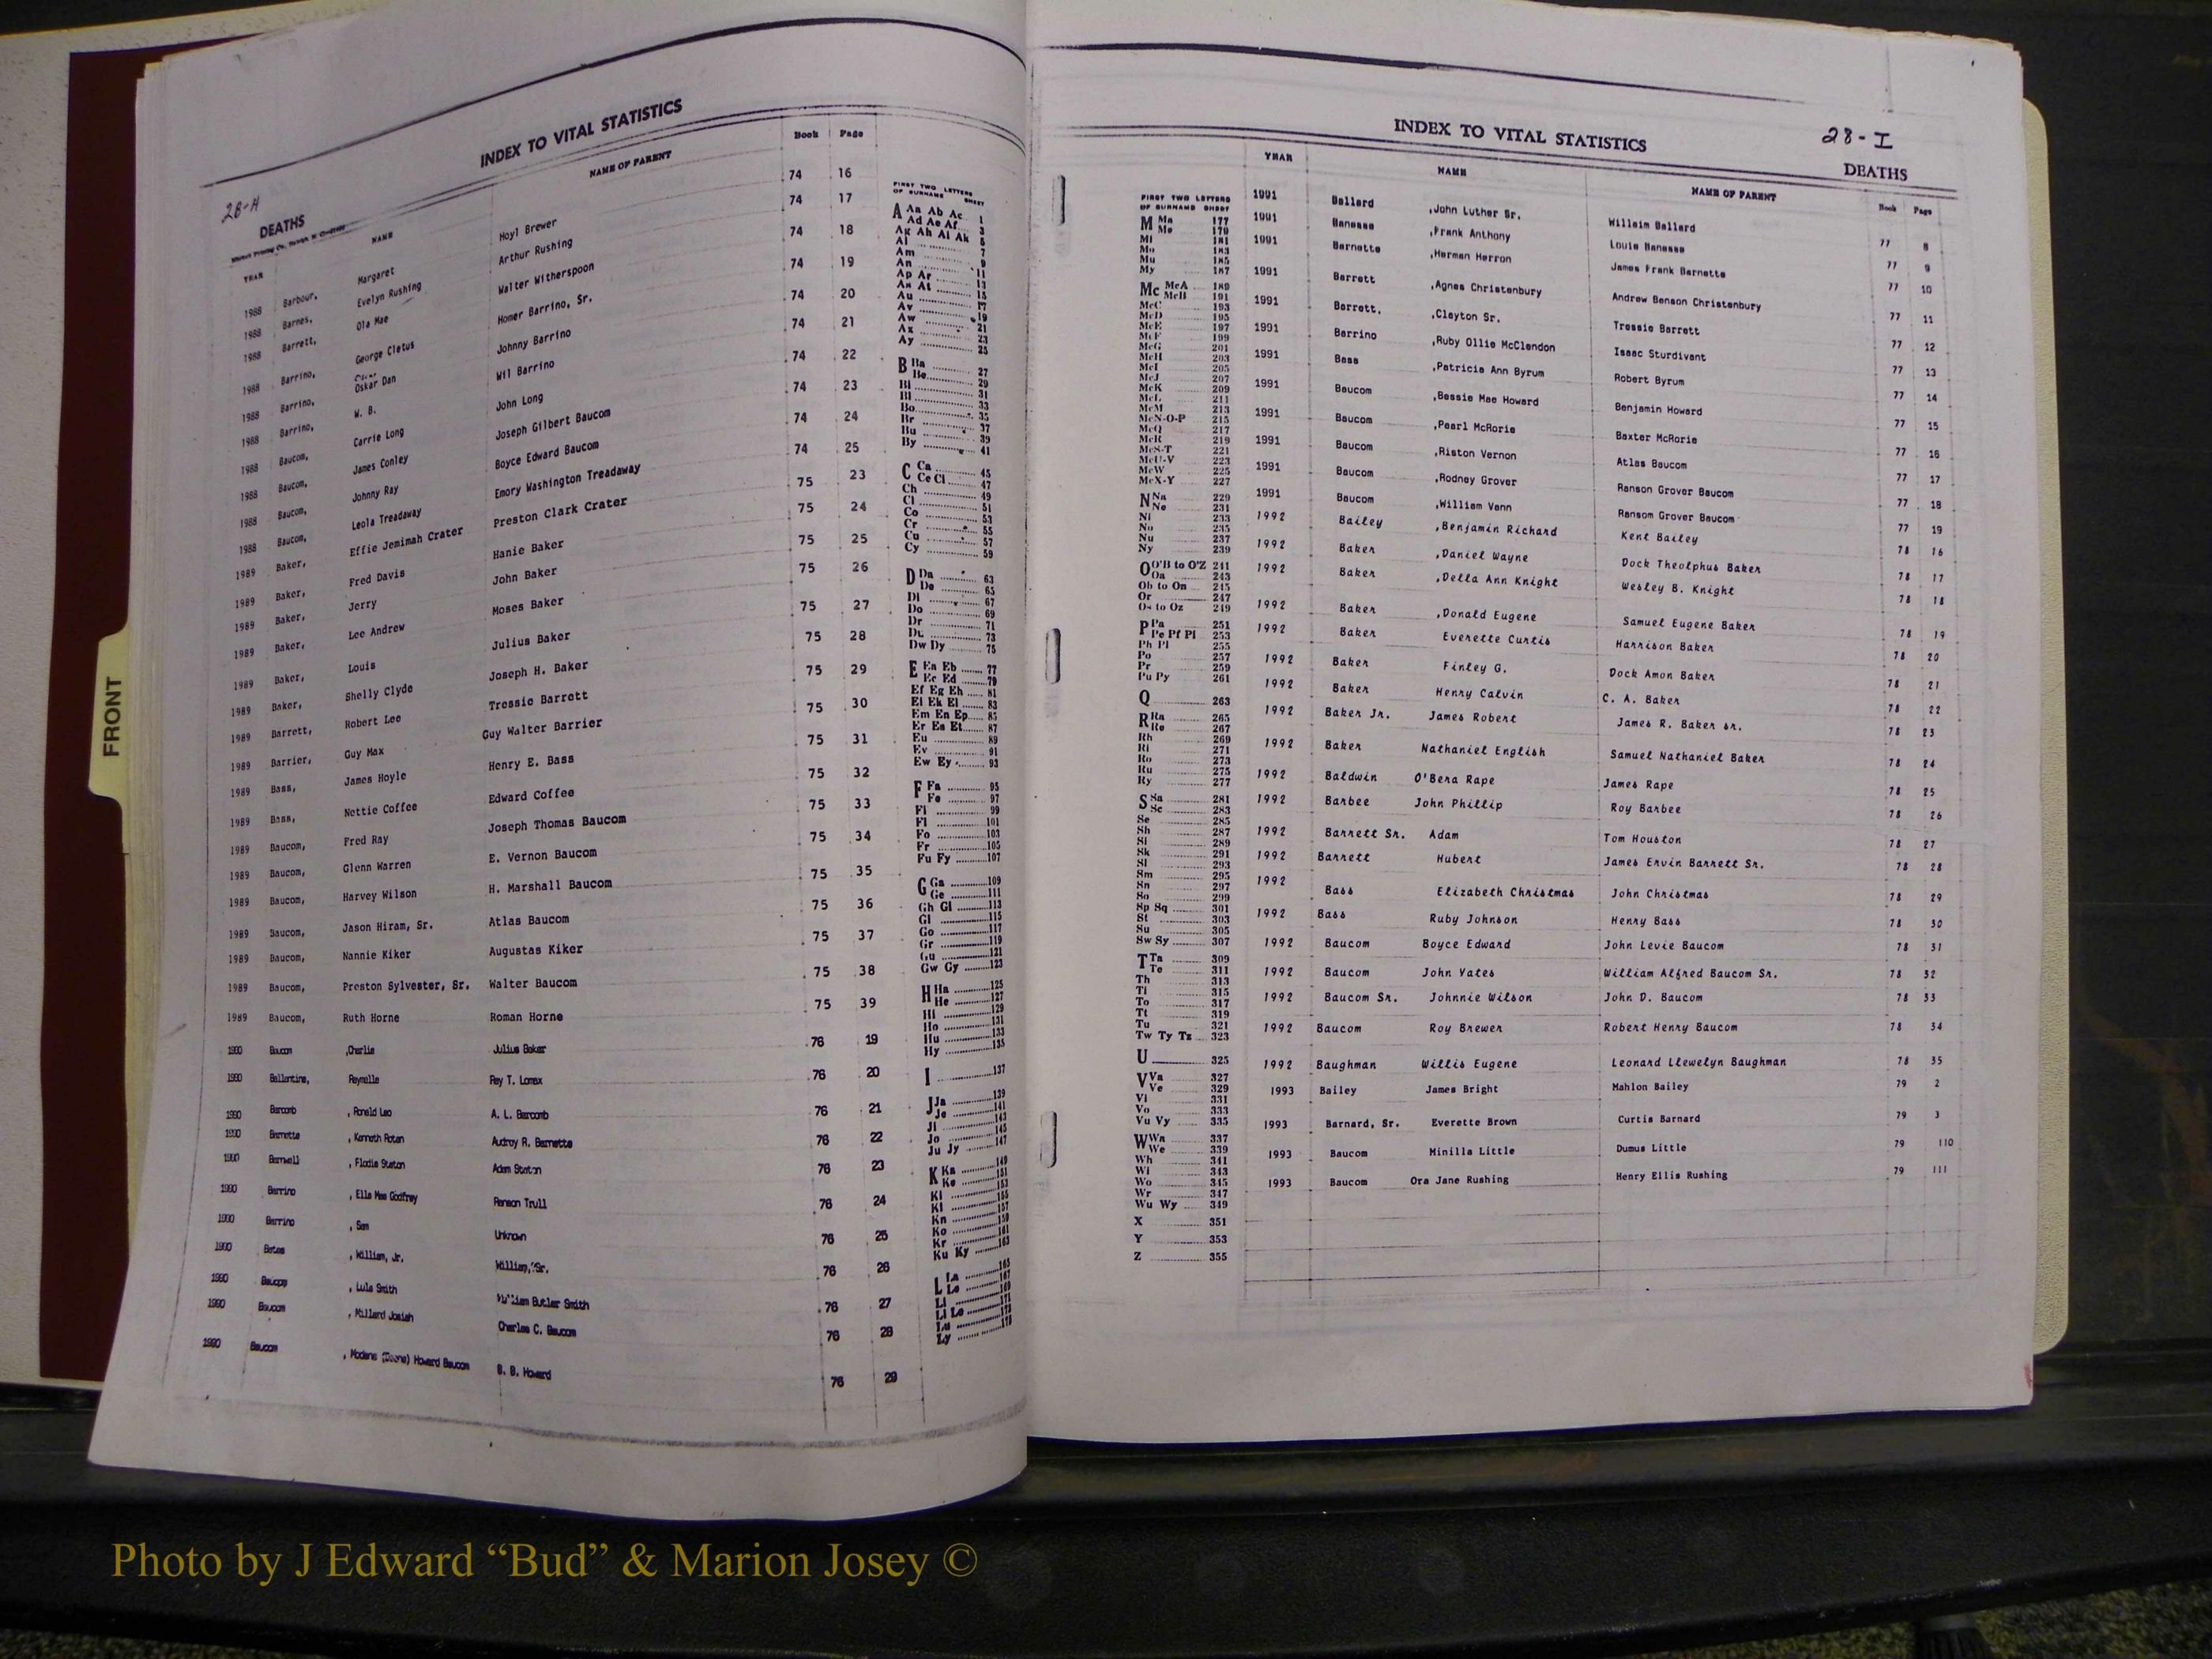 28-H
INDEX TO VITAL STATISTICS
DEATHS
YEAR NAME NAME OF PARENT Book Page
1988 Barbour, Margaret Hoyl Brewer 74 16
1988 Barnes, Evelyn Rushing Arthur Rushing 74 17
1988 Barrett, Ola Mae Walter Witherspoon 74 18
1988 Barrino, George Cletus Homer Barrino, Sr. 74 19
1988 Barrino, Oskar Dan Johnny Barrino 74 20
1988 Barrino, W. B. Wil Barrino 74 21
1988 Baucom, Carrie Long John Long 74 22
1988 Baucom, James Conley Joseph Gilbert Baucom 74 23
1988 Baucom, Johnny Ray Boyce Edward Baucom 74 24
1988 Baucom, Leola Treadaway Emory Washington Treadaway 74 25
1989 Baker, Effie Jemimah Crater Preston Clark Crater 75 23
1989 Baker, Fred Davis Hanie Baker 75 24
1989 Baker, Jerry John Baker 75 25
1989 Baker, Lee Andrew Moses Baker 75 26
1989 Baker, Louis Julius Baker 75 27
1989 Baker, Shelly Clyde Joseph H. Baker 75 28
1989 Barrett, Robert Lee Tressie Barrett 75 29
1989 Barrier, Guy Max Guy Walter Barrier 75 30
1989 Bass, James Hoyle Henry E. Bass 75 31
1989 Bass, Nettie Coffee Edward Coffee 75 32
1989 Baucom, Fred Ray Joseph Thomas Baucom 75 33
1989 Baucom, Glenn Warren E. Vernon Baucom 75 34
1989 Baucom, Harvey Wilson H. Marshall Baucom 75 35
1989 Baucom, Jason Hiram, Sr. Atlas Baucom 75 36
1989 Baucom, Nannie Kiker Augustas Kiker 75 37
1989 Baucom, Preston Sylvester, Sr. Walter Baucom 75 38
1989 Baucom, Ruth Horne Roman Horne 75 39
1990 Baucom ,Charlie Julius Baker 76 19
1990 Ballentine, Reynelle Ray T. Lomax 76 20
1990 Barcomb , Ronald Leo A. L. Barcomb 76 21
1990 Barnette , Kenneth Roten Audroy R. Barnette 76 22
1990 Barnwell , Flodie Staton Adam Staton 76 23
1990 Barrino , Ella Mae Godfrey Ranson Trull 76 24
1990 Barrino , Sam Unknown 76 25
1990 Bates , William, Jr. William, Sr. 76 26
1990 Baucom , Lula Smith William Butler Smith 76 27
1990 Baucom , Millard Josiah Charles C. Baucom 76 28
1990 Baucom , Modena Howard Baucom B. B. Howard 76 29
FIRST TWO LETTERS
OF SURNAME SHEET
A Aa Ab Ac 1
Ad Ae Af 3
Ag Ah Ai Ak 5
Al 7
Am 9
An 11
Ap Ar 13
As At 15
Au 17
Av 19
Aw 21
Ax 23
Ay 25
B Ba 27
Be 29
Bi 31
Bl 33
Bo 35
Br 37
Bu 39
By 41
C Ca 45
Ce Ci 47
Ch 49
Cl 51
Co 53
Cr 55
Cu 57
Cy 59
D Da 63
De 65
Di 67
Do 69
Dr 71
Du 73
Dw Dy 75
E Ea Eb 77
Ec Ed 79
Ef Eg Eh 81
Ei Ek El 83
Em En Ep 85
Er Es Et 87
Eu 89
Ev 91
Ew Ey 93
F Fa 95
Fe 97
Fi 99
Fl 101
Fo 103
Fr 105
Fu Fy 107
G Ga 109
Ge 111
Gh Gi 113
Gl 115
Go 117
Gr 119
Gu 121
Gw Gy 123
H Ha 125
He 127
Hi 129
Ho 131
Hu 133
Hy 135
I 137
J Ja 139
Je 141
Ji 143
Jo 145
Ju Jy 147
K Ka 149
Ke 151
Ki
Kl 157
Kn 159
Ko
Kr 161
Ku Ky 163
L La 165
Le 167
Li 169
Ll Lo 171
Lu 173
Ly 175
FRONT
28-I
INDEX TO VITAL STATISTICS
DEATHS
YEAR NAME NAME OF PARENT Book Page
FIRST TWO LETTERS
OF SURNAME SHEET
M Ma 177
Me 179
Mi 181
Mo 183
Mu 185
My 187
Mc McA 189
McB 191
McC 193
McD 195
McE 197
McF 199
McG 201
McH 203
McI 205
McJ 207
McK 209
McL 211
McM 213
McN-O-P 215
McQ 217
McR 219
McS-T 221
McU-V 223
McW 225
McX-Y 227
N Na 229
Ne 231
Ni 233
No 235
Nu 237
Ny 239
O O'B to O'Z 241
Oa 243
Ob to On 245
Or 247
Os to Oz 249
P Pa 251
Pe Pf Pl 253
Ph Pi 255
Po 257
Pr 259
Pu Py 261
Q 263
R Ra 265
Re 267
Rh 269
Ri 271
Ro 273
Ru 275
Ry 277
S Sa 281
Sc 283
Se 285
Sh 287
Si 289
Sk 291
Sl 293
Sm 295
Sn 297
So 299
Sp Sq 301
St 303
Su 305
Sw Sy 307
T Ta 309
Te 311
Th 313
Ti 315
To 317
Tt 319
Tu 321
Tw Ty Tz 323
U 325
V Va 327
Ve 329
Vi 331
Vo 333
Vu Vy 335
W Wa 337
We 339
Wh 341
Wi 343
Wo 345
Wr 347
Wu Wy 349
X 351
Y 353
Z 355
1991 Ballard ,John Luther Sr. Willaim Ballard 77 8
1991 Banesse ,Frank Anthony Louis Banesse 77 9
1991 Barnette ,Herman Herron James Frank Barnette 77 10
1991 Barrett ,Agnes Christenbury Andrew Benson Christenbury 77 11
1991 Barrett, ,Clayton Sr. Tressie Barrett 77 12
1991 Barrino ,Ruby Ollie McClendon Isaac Sturdivant 77 13
1991 Bass ,Patricia Ann Byrum Robert Byrum 77 14
1991 Baucom ,Bessie Mae Howard Benjamin Howard 77 15
1991 Baucom ,Pearl McRorie Baxter McRorie 77 16
1991 Baucom ,Riston Vernon Atlas Baucom 77 17
1991 Baucom ,Rodney Grover Ranson Grover Baucom 77 18
1991 Baucom ,William Vann Ransom Grover Baucom 77 19
1992 Bailey ,Benjamin Richard Kent Bailey 78 16
1992 Baker ,Daniel Wayne Dock Theolphus Baker 78 17
1992 Baker ,Della Ann Knight Wesley B. Knight 78 18
1992 Baker ,Donald Eugene Samuel Eugene Baker 78 19
1992 Baker Everette Curtis Harrison Baker 78 20
1992 Baker Finley G. Dock Amon Baker 78 21
1992 Baker Henry Calvin C. A. Baker 78 22
1992 Baker Jr. James Robert James R. Baker sr. 78 23
1992 Baker Nathaniel English Samuel Nathaniel Baker 78 24
1992 Baldwin O'Bera Rape James Rape 78 25
1992 Barbee John Phillip Roy Barbee 78 26
1992 Barrett Sr. Adam Tom Houston 78 27
1992 Barrett Hubert James Ervin Barrett Sr. 78 28
1992 Bass Elizabeth Christmas John Christmas 78 29
1992 Bass Ruby Johnson Henry Bass 78 30
1992 Baucom Boyce Edward John Levie Baucom 78 31
1992 Baucom John Yates William Alfred Baucom Sr. 78 32
1992 Baucom Sr. Johnnie Wilson John D. Baucom 78 33
1992 Baucom Roy Brewer Robert Henry Baucom 78 34
1992 Baughman Willis Eugene Leonard Llewelyn Baughman 78 35
1993 Bailey James Bright Mahlon Bailey 79 2
1993 Barnard, Sr. Everette Brown Curtis Barnard 79 3
1993 Baucom Minilla Little Dumus Little 79 110
1993 Baucom Ora Jane Rushing Henry Ellis Rushing 79 111
Photo by J Edward “Bud” & Marion Josey ©